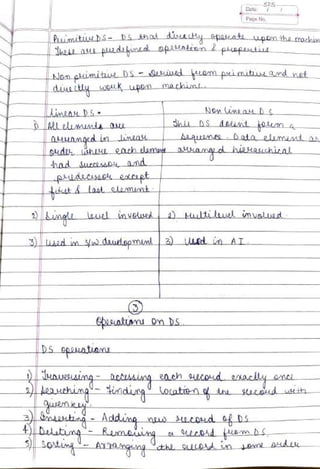 Date: / /
Page No.
Primitive DS - DS that directly operate upon the machin
These are predefined operation & properties
Non primitive DS - derived from primitive and not
directly work upon machine.
Linear DS. Non linear DS
1) All elements are This DS doesnt form a
arranged in linear sequence. Data element ar
order where each element arranged hierarchical
had successor and
predecessor except
first & last element.
2) Single level involved 2) Multilevel involved.
3) Used in s/w development 3) Used in AI.
3
Operations on DS.
DS operations
1) Traversing - accessing each record exactly once
2) Searching - Finding location of the record with
given key.
3) Inserting - Adding new record of DS
4) Deleting - Removing a record from DS.
5) Sorting - Arranging the record in some order